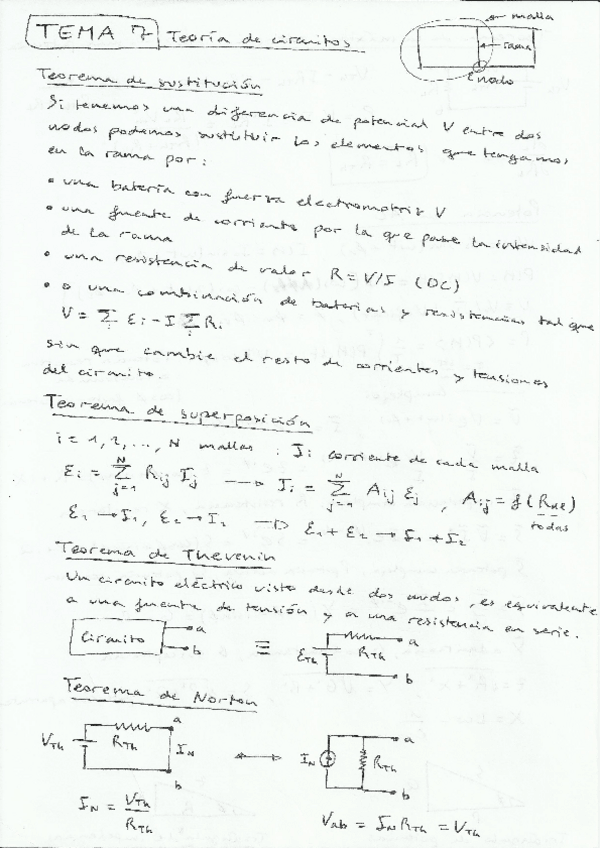 TEMA 7 Teoría de circuitos
malla
rama
nodo
Teorema de sustitución
Si tenemos una diferencia de potencial V entre dos
nodos podemos sustituir los elementos que tengamos
en la rama por:
• una batería con fuerza electromotriz V
• una fuente de corriente por la que pase la intensidad
de la rama
• una resistencia de valor R = V/I (DC)
• o una combinación de baterías y resistencias tal que
V = Σ εi - I Σ Ri
sin que cambie el resto de corrientes y tensiones
del circuito
Teorema de superposición
i = 1, 2, ..., N mallas : Ii corriente de cada malla
εi = Σ(j=1, N) Rij Ij → Ii = Σ(j=1, N) Aij εj , Aij = f(Rkl)
todas
ε1 → I1, ε2 → I2 → ε1 + ε2 → I1 + I2
Teorema de Thevenin
Un circuito eléctrico visto desde dos nodos, es equivalente
a una fuente de tensión y a una resistencia en serie.
Circuito a b ≡ εTh RTh a b
Teorema de Norton
VTh RTh IN a b ↔ IN RTh a b
IN = VTh / RTh
Vab = IN RTh = VTh